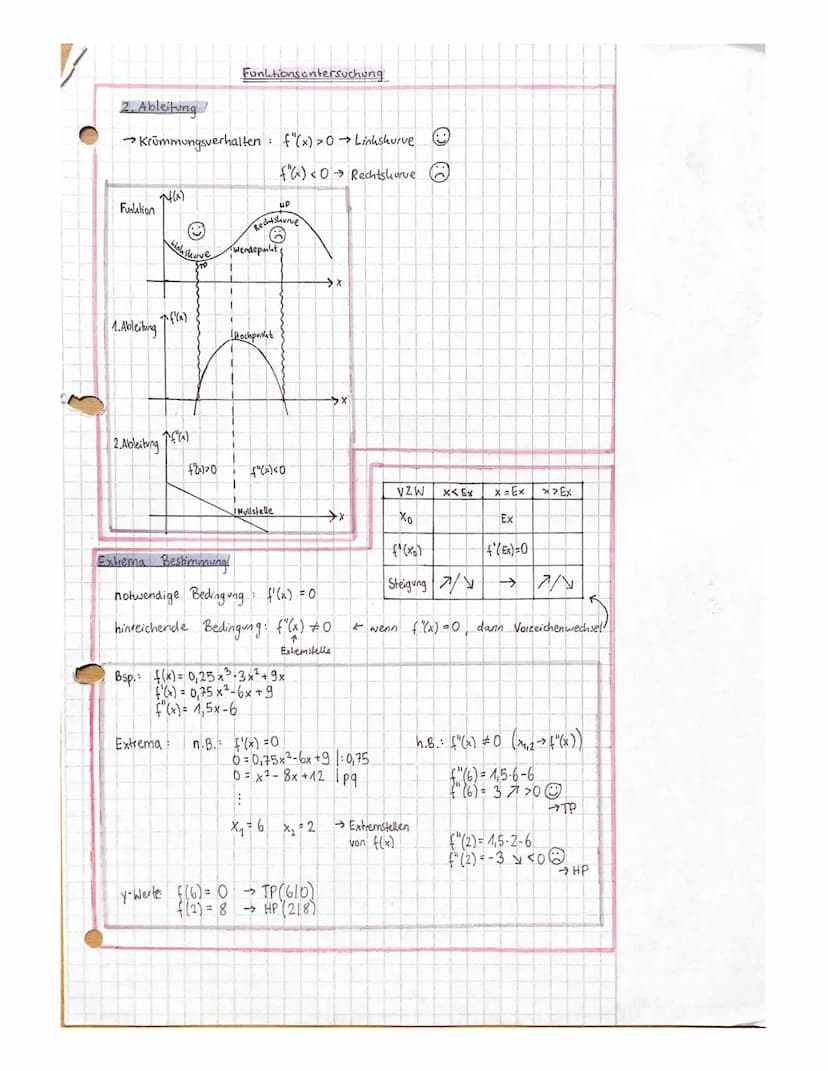 Funktionsuntersuchung
2. Ableitung
→ Krümmungsverhalten : f"(x) > 0 → Linkskurve ☺
f"(x) < 0 → Rechtskurve ☹
Funktion
f(x)
HP
Rechtskurve
Linkskurve
Wendepunkt
TP
x
1. Ableitung
f'(x)
Hochpunkt
x
2. Ableitung
f"(x)
f"(x)>0 f"(x)<0
Nullstelle
x
VZW x<Ex x=Ex x>Ex
x₀ Ex
f'(x₀) f'(Ex)=0
Steigung ↗/↘ → ↗/↘
Extrema Bestimmung
notwendige Bedingung : f'(x) = 0
hinreichende Bedingung: f"(x) ≠ 0 ← wenn f"(x) = 0, dann Vorzeichenwechsel!
↑
Extremstelle
Bsp.: f(x) = 0,25x³-3x²+9x
f'(x) = 0,75x²-6x+9
f"(x) = 1,5x-6
Extrema : n.B.: f'(x) = 0
0 = 0,75x²-6x+9 |:0,75
0 = x² - 8x + 12 | pq
⋮
x₁ = 6 x₂ = 2 → Extremstellen
von f(x)
h.B.: f"(x) ≠ 0 (x₁,₂ → f"(x))
f"(6) = 1,5·6-6
f"(6) = 3 ↗ >0 ☺
→ TP
f"(2) = 1,5·2-6
f"(2) = -3 ↘ <0 ☹
→ HP
y-Werte: f(6) = 0 → TP(6|0)
f(2) = 8 → HP(2|8)